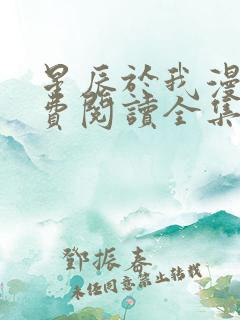 星辰於我漫
費閱讀全集
鄧振春
未任同意禁止轉載